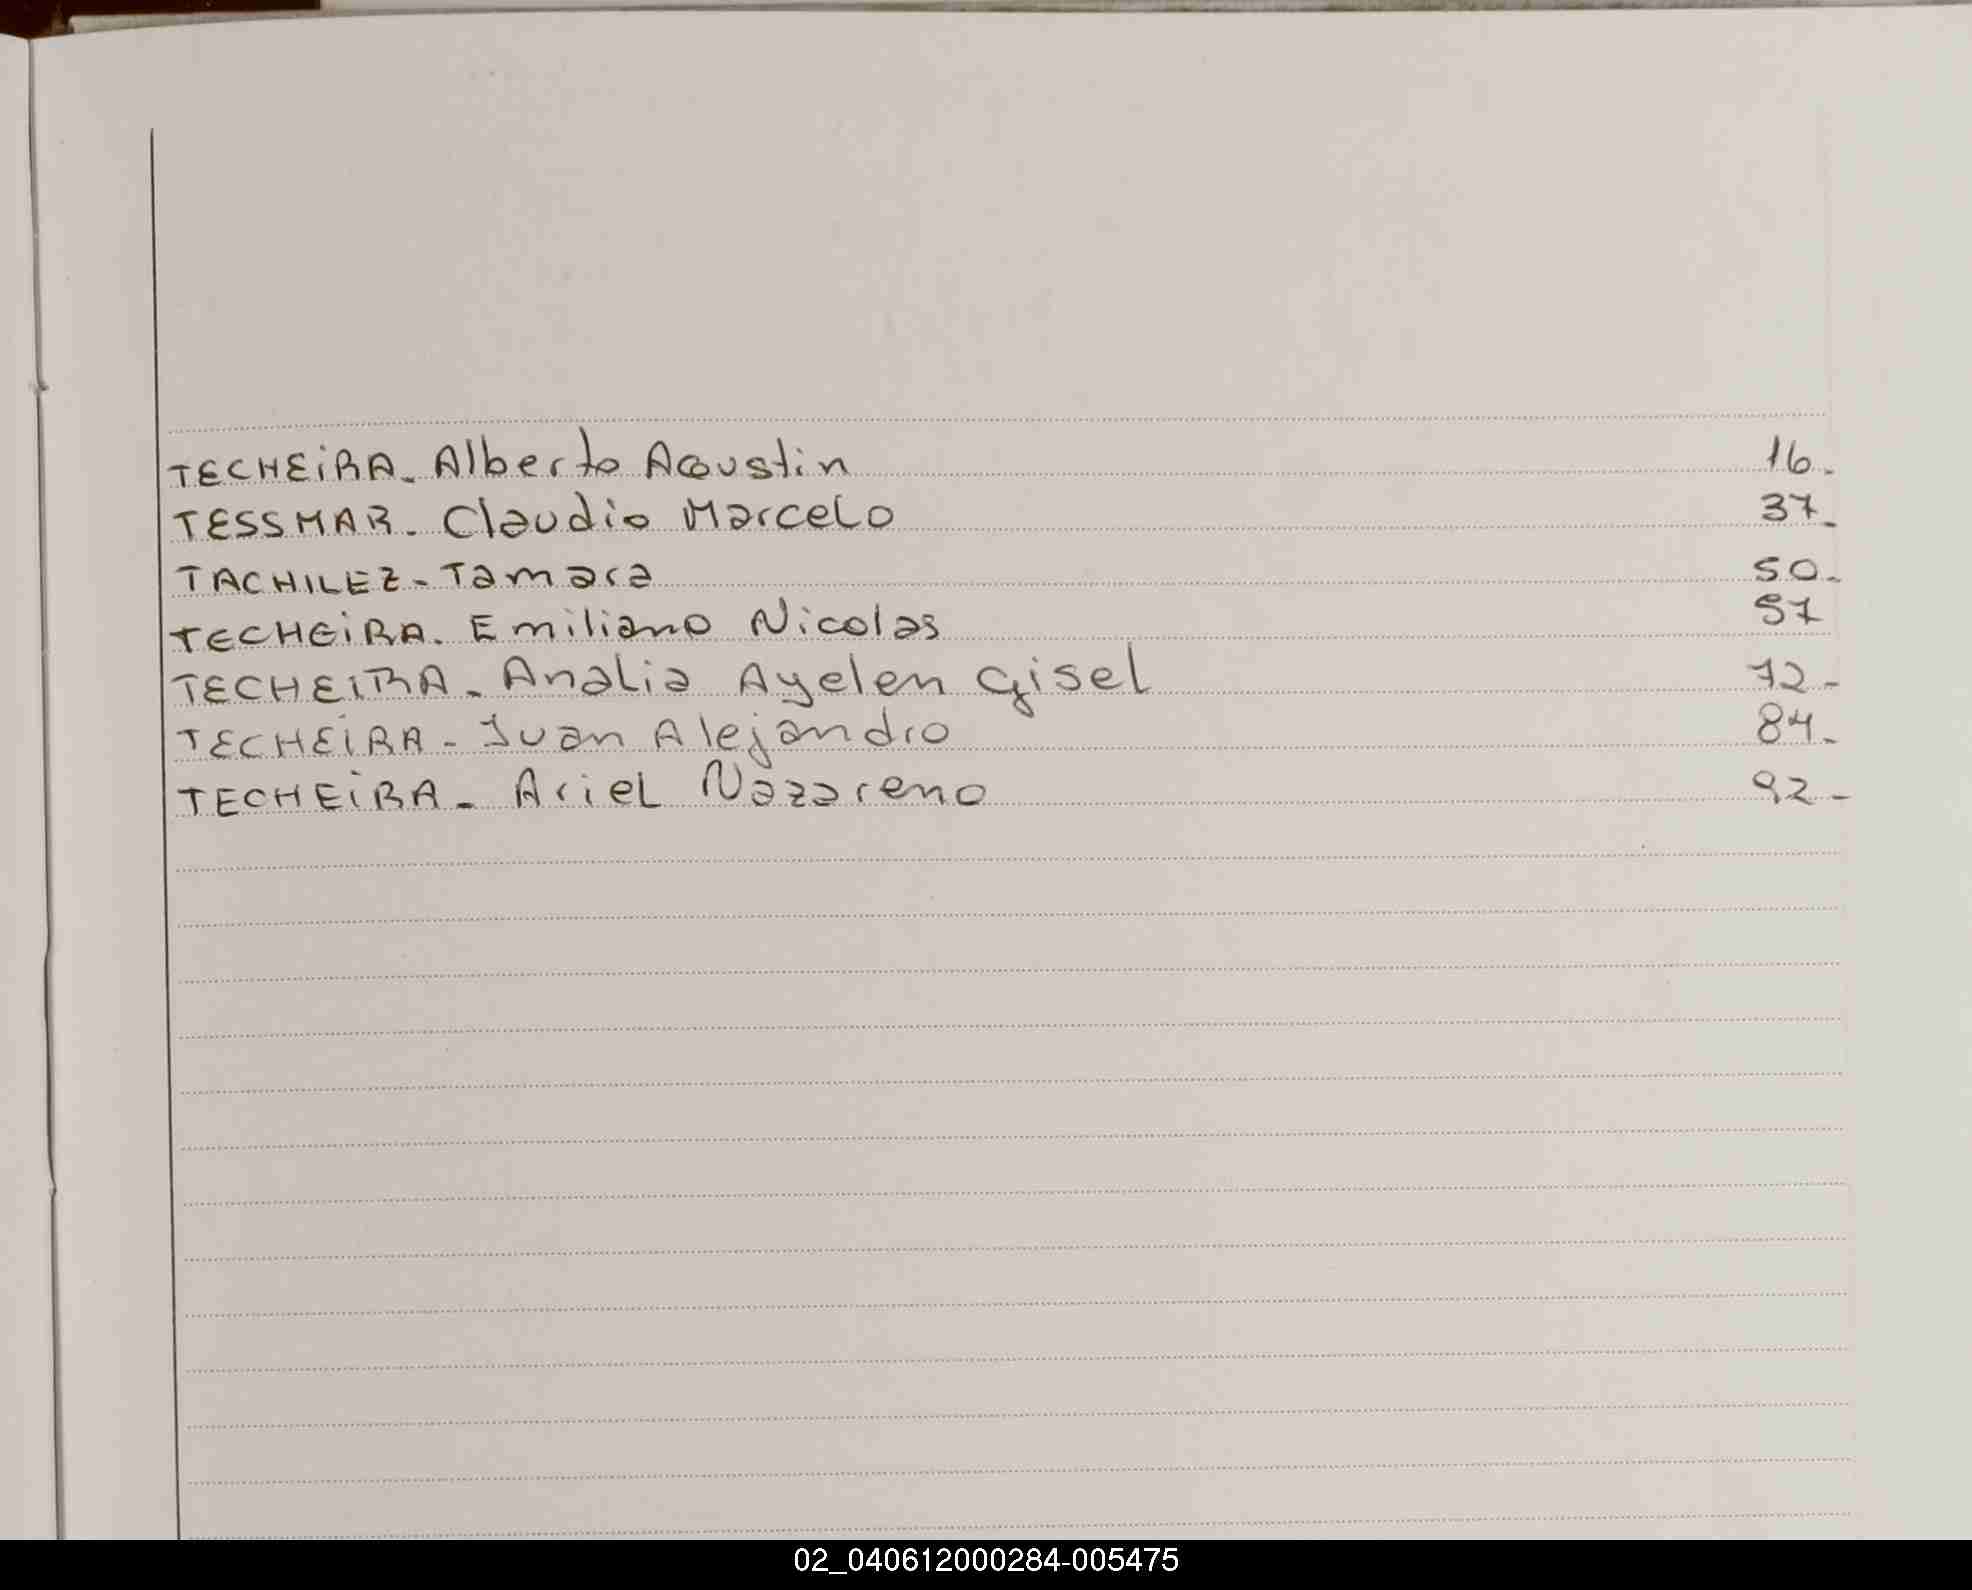 TECHEiRA. Alberto Agustin 16.
TESSMAR. Claudio Marcelo 37.
TACHILEZ - Tamara 50.
TECHEiRA. Emiliano Nicolas 57
TECHEIRA. Analia Ayelen Gisel 72-
TECHEiRA - Juan Alejandro 84.
TECHEiRA - Ariel Nazareno 92-
02_040612000284-005475